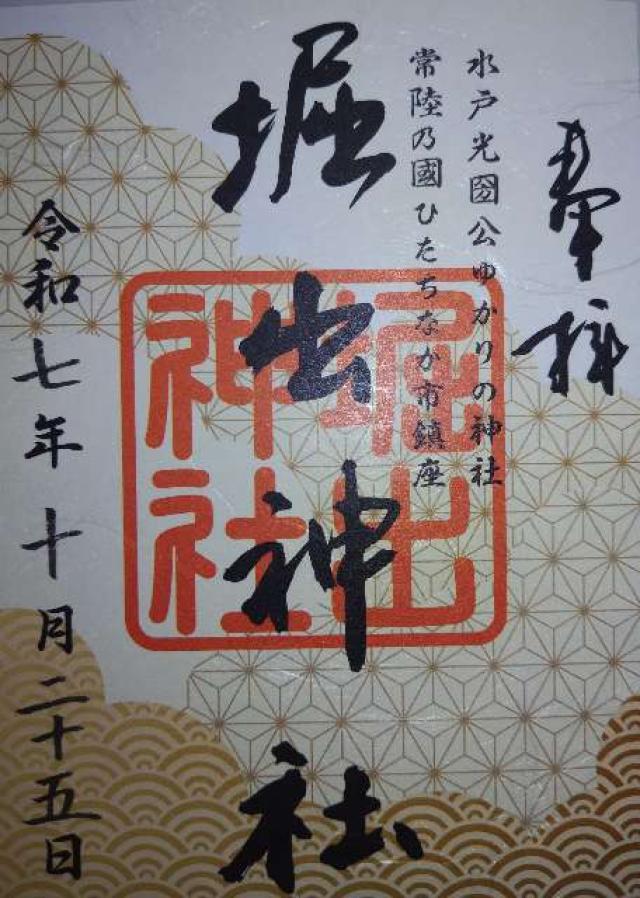 奉拝
水戸光圀公ゆかりの神社
常陸乃國ひたちなか市鎮座
堀出神社
堀出
神社
令和七年十月二十五日